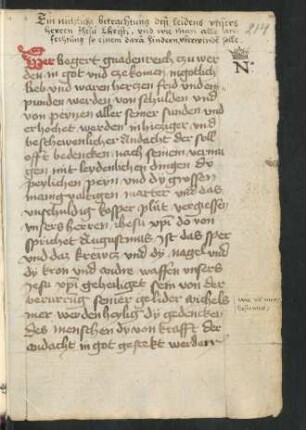 Ein nützliche betrachtung deß leidens unsers
herren Jesu Christi, und wie man alle an-
fechtung so einem dara hindern, uberwindē solle.
214
N.
Wer begert gnadenreich czu wer
den in got und czekomen in gotlich
lieb und waren hertzen frid und em
punden werden von schulden und
von peynen aller seiner sunden und
erhochet werden in hicziger und
beschewenlicher andacht der soll
offt bedencken nach seinem vermu
gen mit leydenlichen dingen dy
peylichen peyn und dy grossen
manigualtigen marter und das
unschuldig kosper plůt vergiessen
unsers herren ihesu xpi do von
sprichet Augustinus ist das sper
und daz krewcz und dy nagel und
dy kron und andre waffen unsers
Jesu xpi geheiliget sein von der
berurung seiner gelider michels
mer werden heylig dy gedencken
des menschen dy von krafft der
andacht in got gesterkt werden